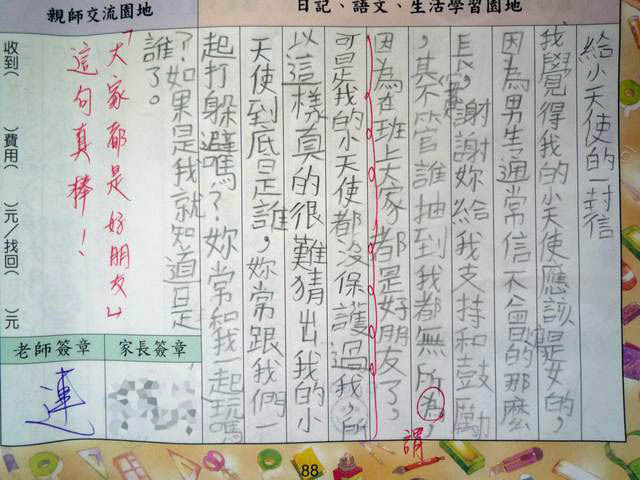 日記、語文、生活學習園地
給小天使的一封信
我覺得我的小天使應該是女的，
因為男生通常信不會寫的那麼
長，謝謝妳給我支持和鼓勵
，其實不管誰抽到我都無所為，
謂
因為在班上大家都是好朋友了，
可是我的小天使都沒保護過我，所
以這樣真的很難猜出我的小
天使到底是誰，妳常跟我們一
起打躲避嗎？妳常和我一起玩嗎
？如果是我就知道是
誰了。
親師交流園地
「大家都是好朋友」
這句真棒！
收到（ ）費用（ ）元／找回（ ）元
家長簽章
老師簽章
連
88